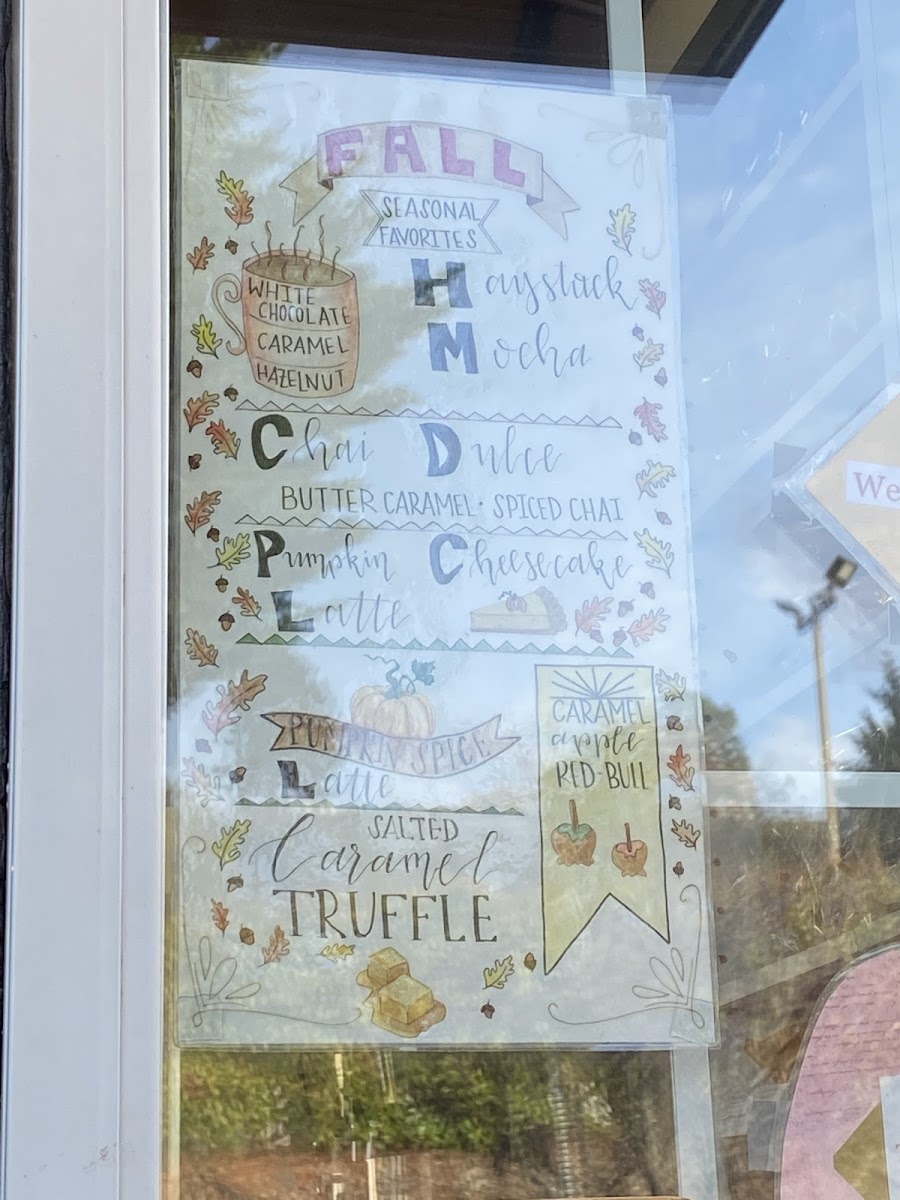 FALL
SEASONAL
FAVORITES
WHITE
CHOCOLATE
CARAMEL
HAZELNUT
Haystack
Mocha
Chai Dulce
BUTTER CARAMEL · SPICED CHAI
Pumpkin Cheesecake
Latte
PUMPKIN SPICE
Latte
CARAMEL
apple
RED-BULL
SALTED
Caramel
TRUFFLE
We